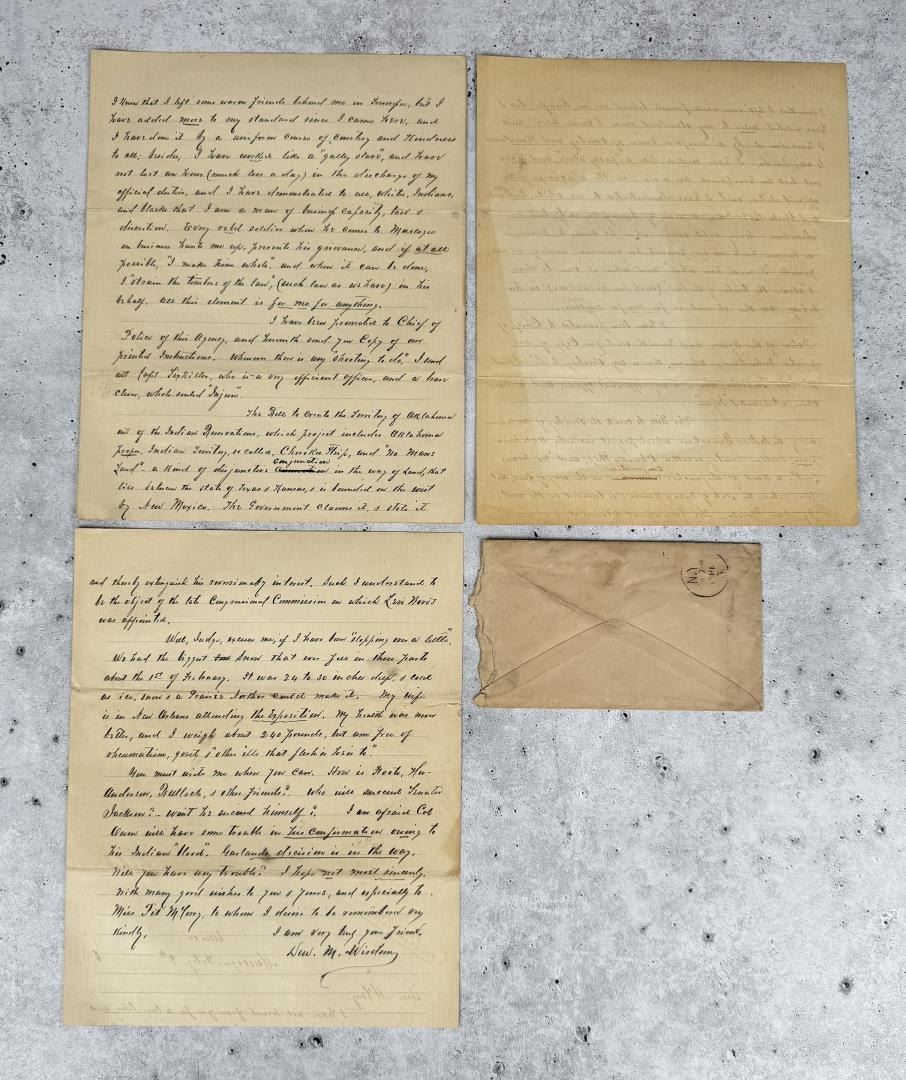 I know that I left some warm friends behind me in Tennessee, but I
have added more to my standard since I came here, and
I have done it by a uniform course of courtesy and kindness
to all; besides, I have worked like a "gally slave", and have
not lost an hour (much less a day) in the discharge of my
official duties, and I have demonstrated to all, whites, Indians,
and blacks that I am a man of business capacity, tact &
discretion. Every rebel soldier when he comes to Muscogee
on business hunts me up, presents his grievance, and if at all
possible, "I make him whole", and when it can be done,
I "strain the timbers of the law", (such law as we have) in his
behalf. All this element is for me for anything.
I have been promoted to Chief of
Police of this Agency, and herewith send you Copy of our
printed Instructions. Whenever there is any "shooting to do", I send
out Capt Sixkiller, who is a very efficient officer, and a brave
clever, whole-souled "Injun".
The Bill to create the Territory of Oklahoma
out of the Indian Reservations, which project includes Oklahoma
proper, Indian Territory, so called, Cherokee Strip, and "No Mans
conjunction
Land" – a kind of disjunctive in the way of Land, that
lies between the State of Texas & Kansas, & is bounded on the west
by New Mexico. The Government claims it, & stole it
and thereby extinguish his reversionary interest. Such I understand to
be the object of the late Congressional Commission on which
was appointed.
Well, Judge, excuse me, if I have been "slopping over a little".
We had the biggest snow that ever fell in these parts
about the 1st of February. It was 24 to 30 inches deep, & cold
as ice, snow & a Prairie Norther could make it. My wife
is in New Orleans attending the Exposition. My health was never
better, and I weigh about 240 pounds, but am free of
rheumatism, gout & "other ills that flesh is heir to"
You must write me when you can. How is Foote, Hu
Anderson, Bullock, & other friends? Who will succeed Senator
Jackson? – wont he succeed himself? I am afraid Col
Owen will have some trouble in his confirmation owing to
his Indian "blood". Garlands decision is in the way.
Will you have any trouble? I hope not most sincerely.
With many good wishes to you & yours, and especially to
Miss Pet McCorry, to whom I desire to be remembered very
kindly, I am very truly your friend,
Dew. M. Wisdom